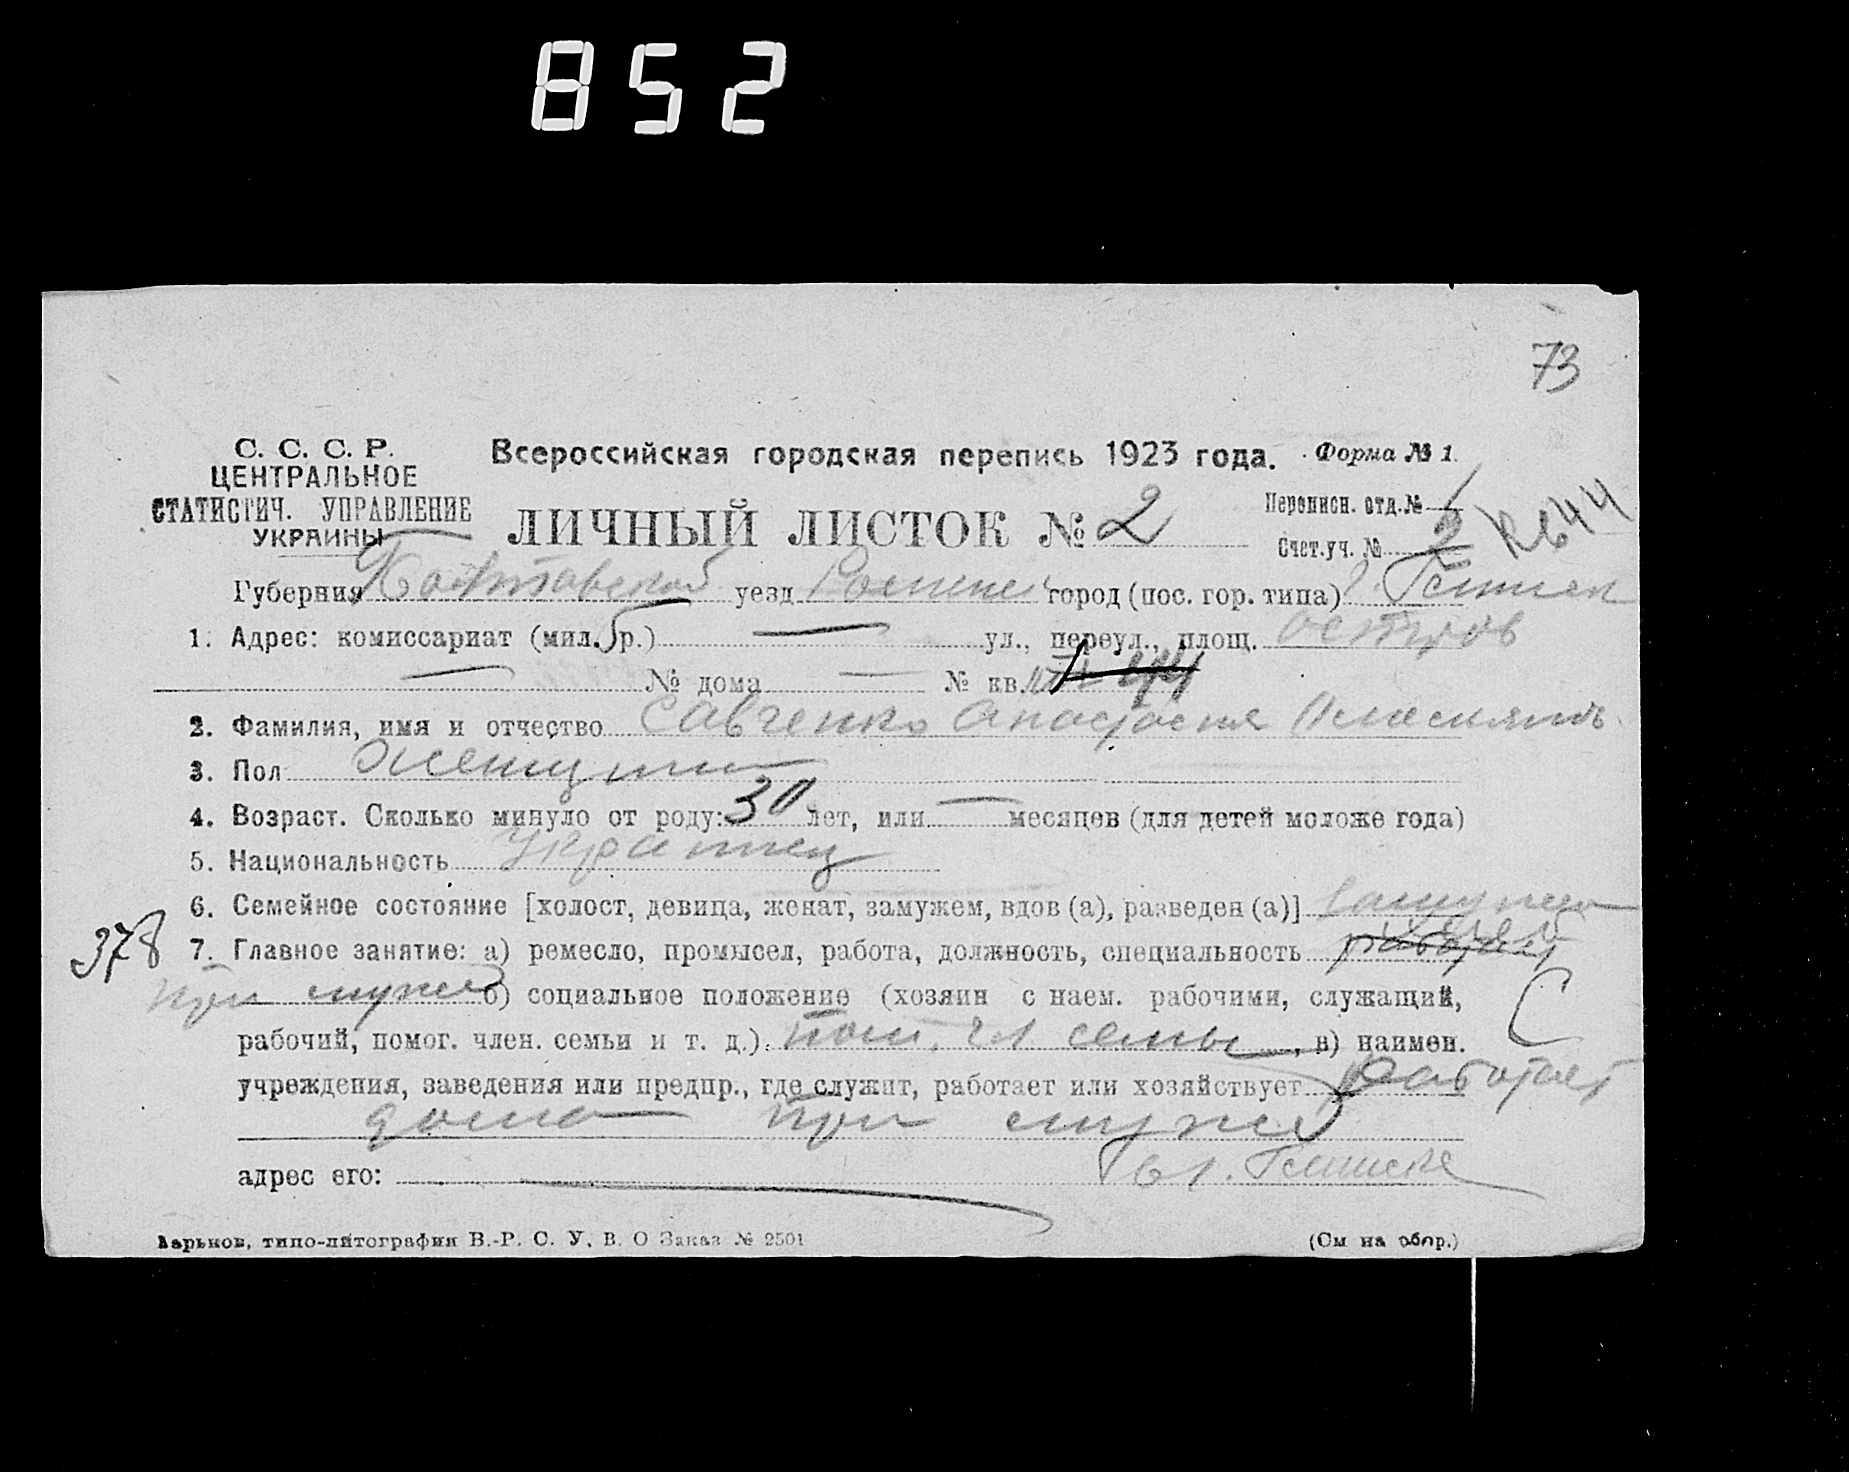 852
73
С. С. С. Р.
ЦЕНТРАЛЬНОЕ
СТАТИСТИЧ. УПРАВЛЕНИЕ
УКРАИНЫ
Всероссийская городская перепись 1923 года. Форма № 1.
ЛИЧНЫЙ ЛИСТОК № 2
Переписн. отд. № 1
Счет. уч. № 2
Губерния Полтавской уезд город (пос. гор. типа)
1. Адрес: комиссариат (мил. р.) — ул., переул., площ. остров
— № дома — № кв.
2. Фамилия, имя и отчество Савченко Анастасия
3. Пол Женщина
4. Возраст. Сколько минуло от роду: 30 лет, или — месяцев (для детей моложе года)
5. Национальность Украинец
6. Семейное состояние [холост, девица, женат, замужем, вдов (а), разведен (а)] замужем
378 7. Главное занятие: а) ремесло, промысел, работа, должность, специальность работает
при муже б) социальное положение (хозяин с наем. рабочими, служащий,
рабочий, помог. член. семьи и т. д.). пом. чл семьи, в) наимен.
учреждения, заведения или предпр., где служит, работает или хозяйствует Работает
дома при муже
адрес его:
Харьков, типо-литография В.-Р. С. У. В. О Заказ № 2501
(См на обор.)